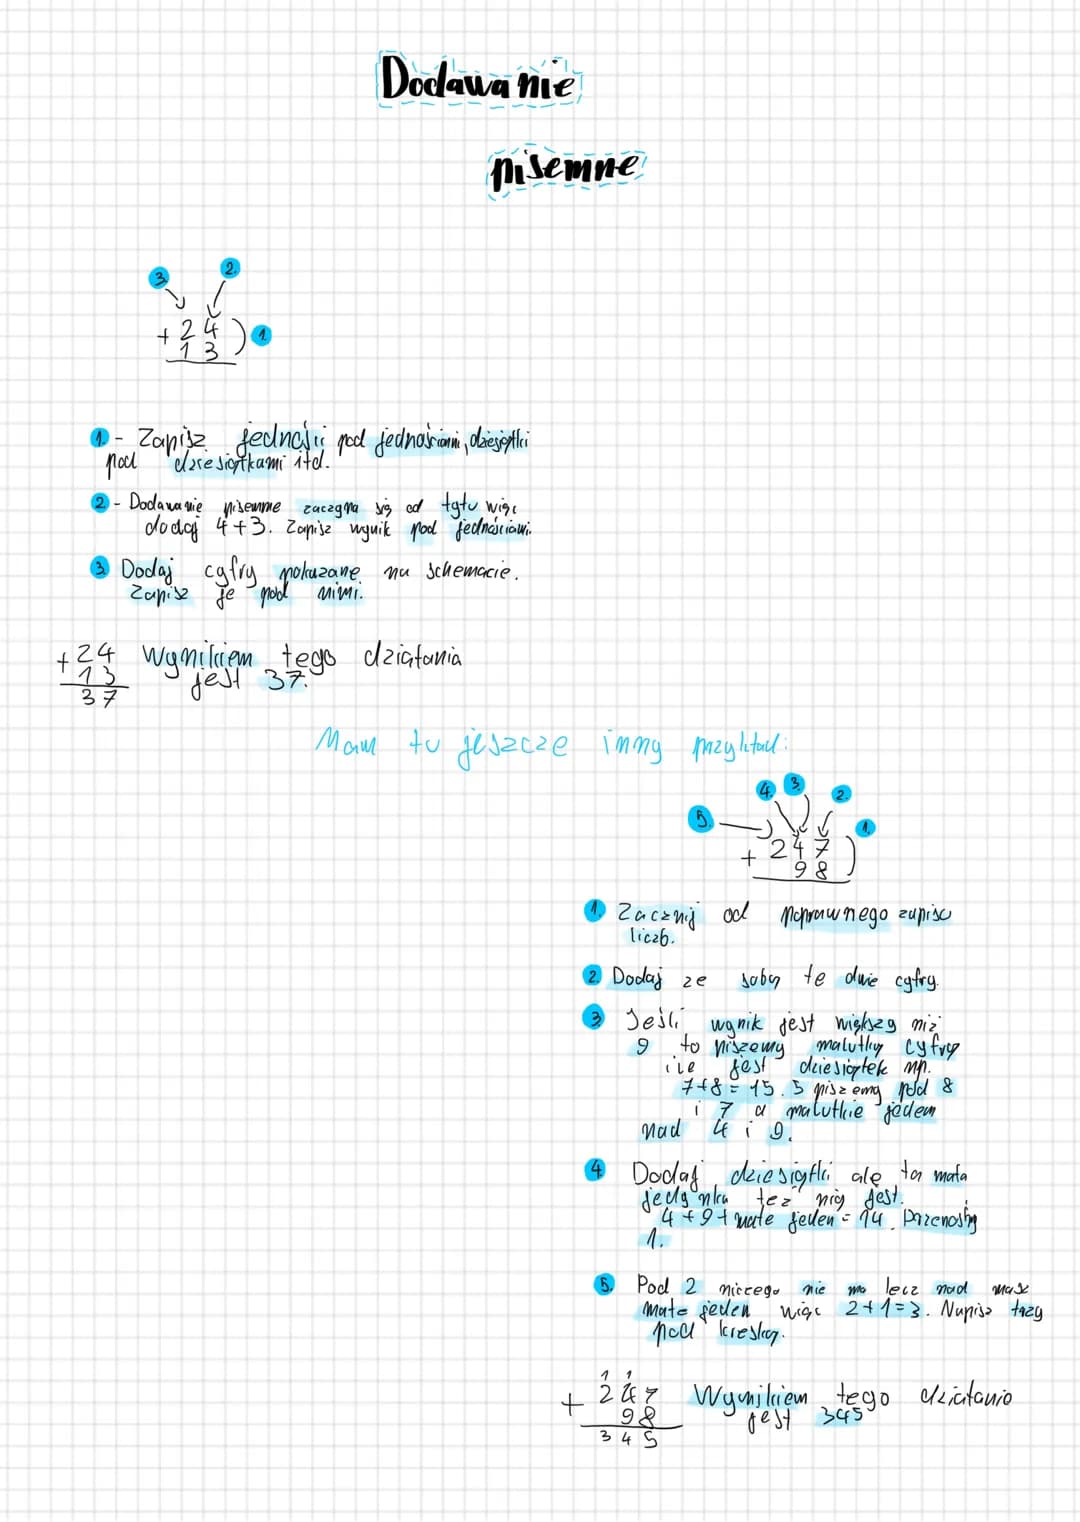 Dodawanie
pisemne
3. 2.
+ 24 ) 1.
13
1. - Zapisz jedności pod jednościami, dziesiątki
pod dziesiątkami itd.
2 - Dodawanie pisemne zaczyna się od tyłu więc
dodaj 4+3. Zapisz wynik pod jednościami.
3. Dodaj cyfry pokazane na schemacie.
Zapisz je pod nimi.
+ 24 Wynikiem tego działania
13 jest 37.
37
Mam tu jeszcze inny przykład:
4. 3. 2.
5. 1.
+ 247 )
98
1. Zacznij od poprawnego zapisu
liczb.
2. Dodaj ze sobą te dwie cyfry.
3. Jeśli wynik jest większy niż
9 to piszemy malutką cyfrą
ile jest dziesiątek np.
7+8 = 15. 5 piszemy pod 8
i 7 a malutkie jeden
nad 4 i 9.
4. Dodaj dziesiątki ale ta mała
jedynka też nią jest.
4+9+małe jeden = 14. Przenosimy
1.
5. Pod 2 niczego nie ma lecz nad masz
małe jeden więc 2+1=3. Napisz trzy
pod kreską.
1 1
+ 247 Wynikiem tego działania
98 jest 345
345